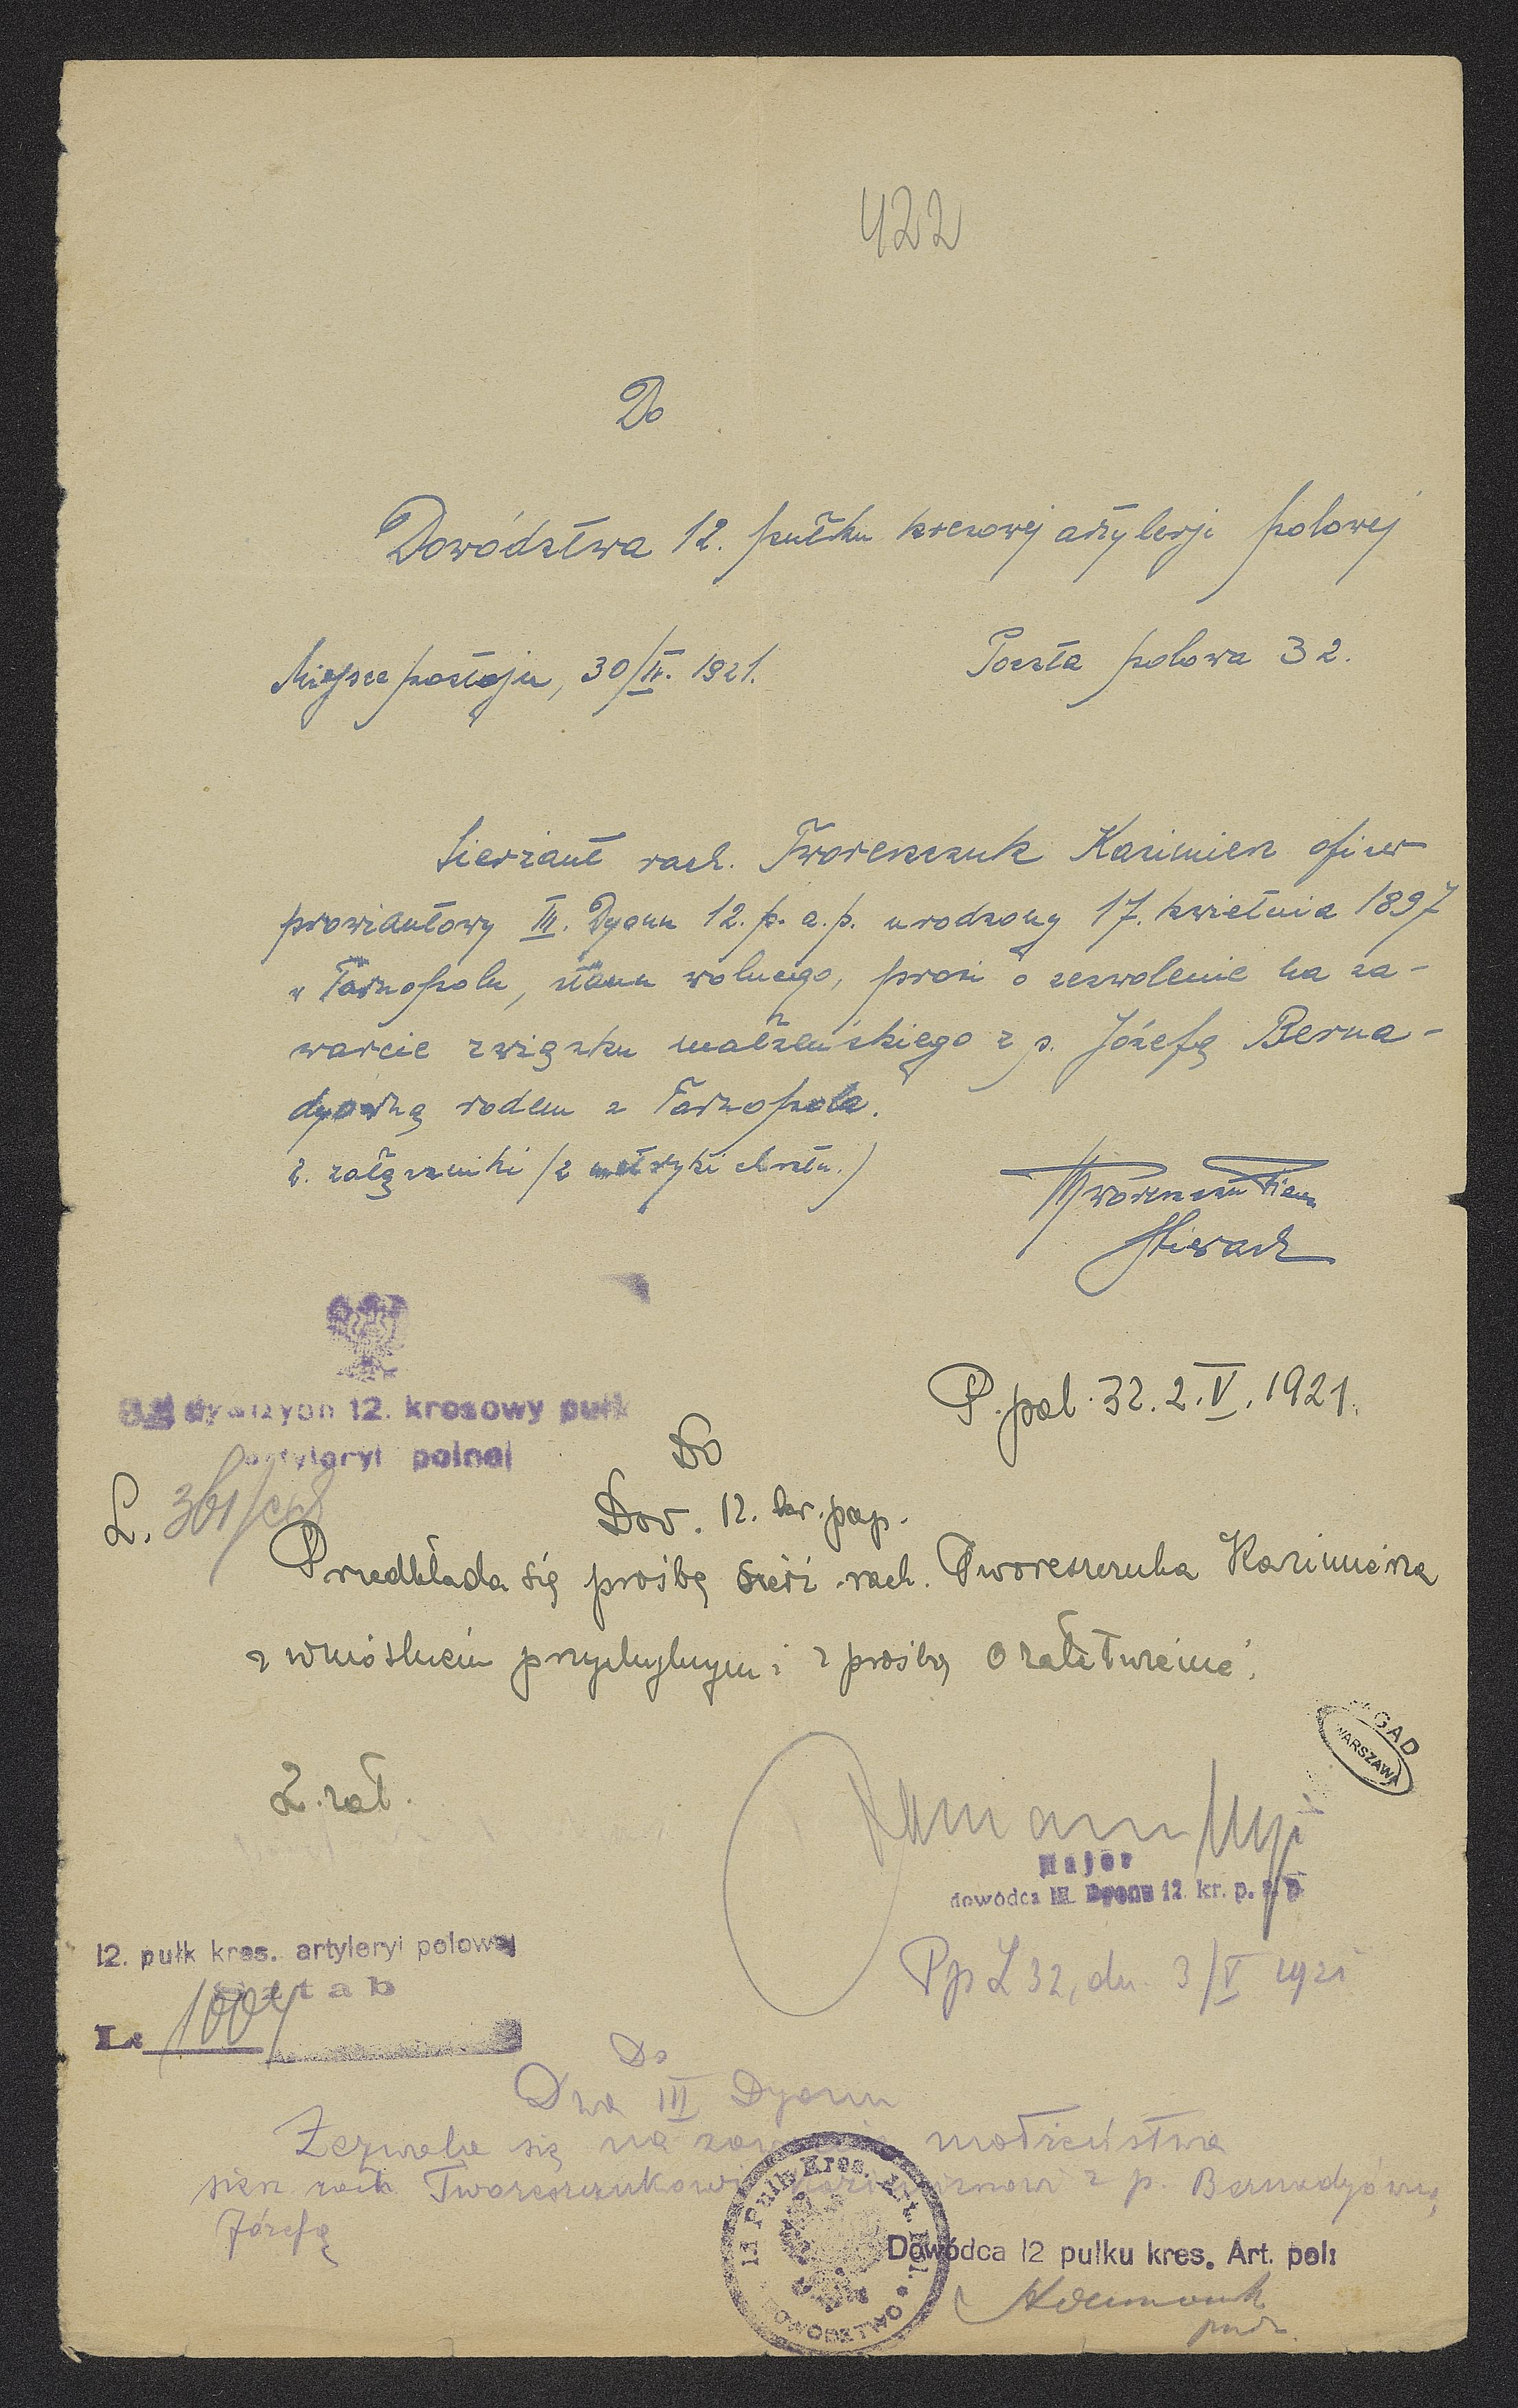 422
Do
Dowództwa 12. pułku kresowej artylerji polowej
Miejsce postoju, 30/IV. 1921.
Poczta polowa 32.
Sierżant rach. Tworeszczuk Kazimierz oficer
prowiantowy III. Dyonu 12. p. a. p. urodzony 17. kwietnia 1897
w Tarnopolu, stanu wolnego, prosi o zezwolenie na za-
warcie związku małżeńskiego z p. Józefą Berna-
dyówną rodem z Tarnopola.
2. załączniki (2 metryki chrztu.)
P. pol. 32. 2. V. 1921.
dywizyon 12. kresowy pułk
artyleryi polnej
L. 361/
Do
Dow. 12. kr. pap.
Przedkłada się prośbę sierż. rach. Tworeszczuka Kazimierza
z wnioskiem przychylnym i z prośbą o załatwienie.
2. zał.
AGAD
WARSZAWA
Major
dowódca III. Dyonu 12. kr. p. a. p.
12. pułk kres. artyleryi polowej
Sztab
L: 1004
Pp L 32, dn. 3/V 1921
Do
Dwa III Dyonu
Zezwala się na zawarcie małżeństwa
sierż rach Tworeszczukowi Kazimierzowi z p. Bernadyówną
Józefą
12 Pułk Kres. Art. Pol.
DOWÓDZTWO
Dowódca 12 pułku kres. Art. pol: